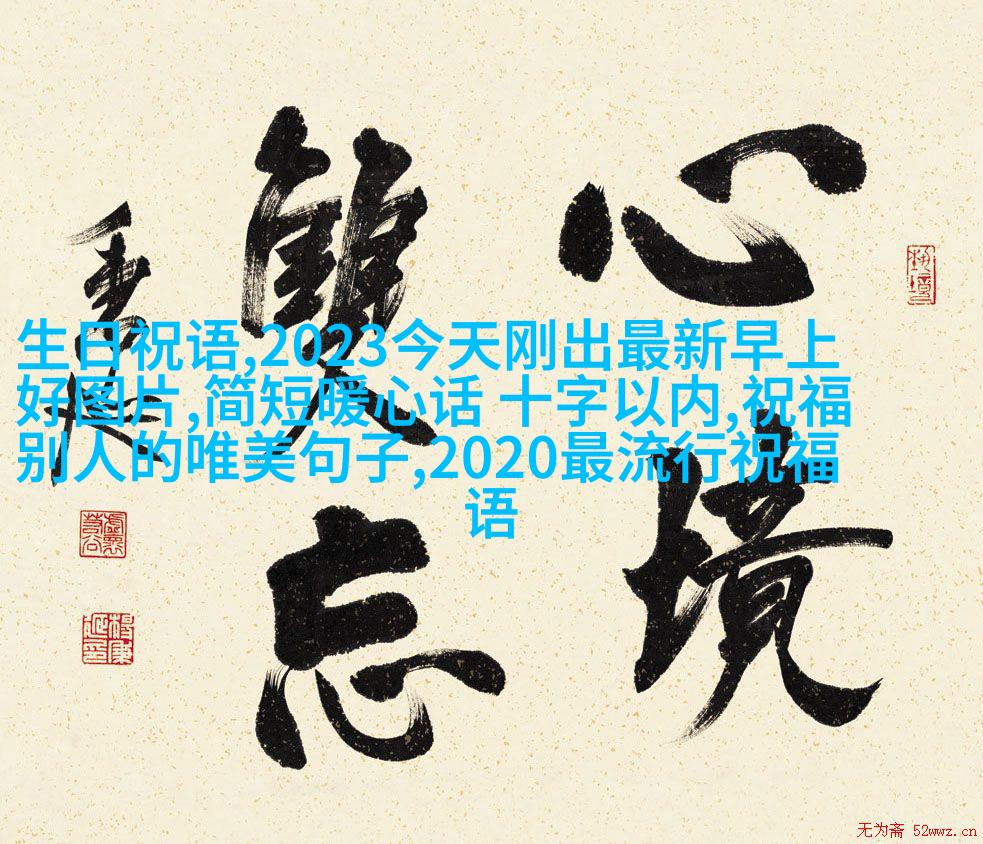 心境
雙忘
生日祝语,2023今天刚出最新早上
好图片,简短暖心话 十字以内,祝福
别人的唯美句子,2020最流行祝福
语
无为斋 52wwz.cn